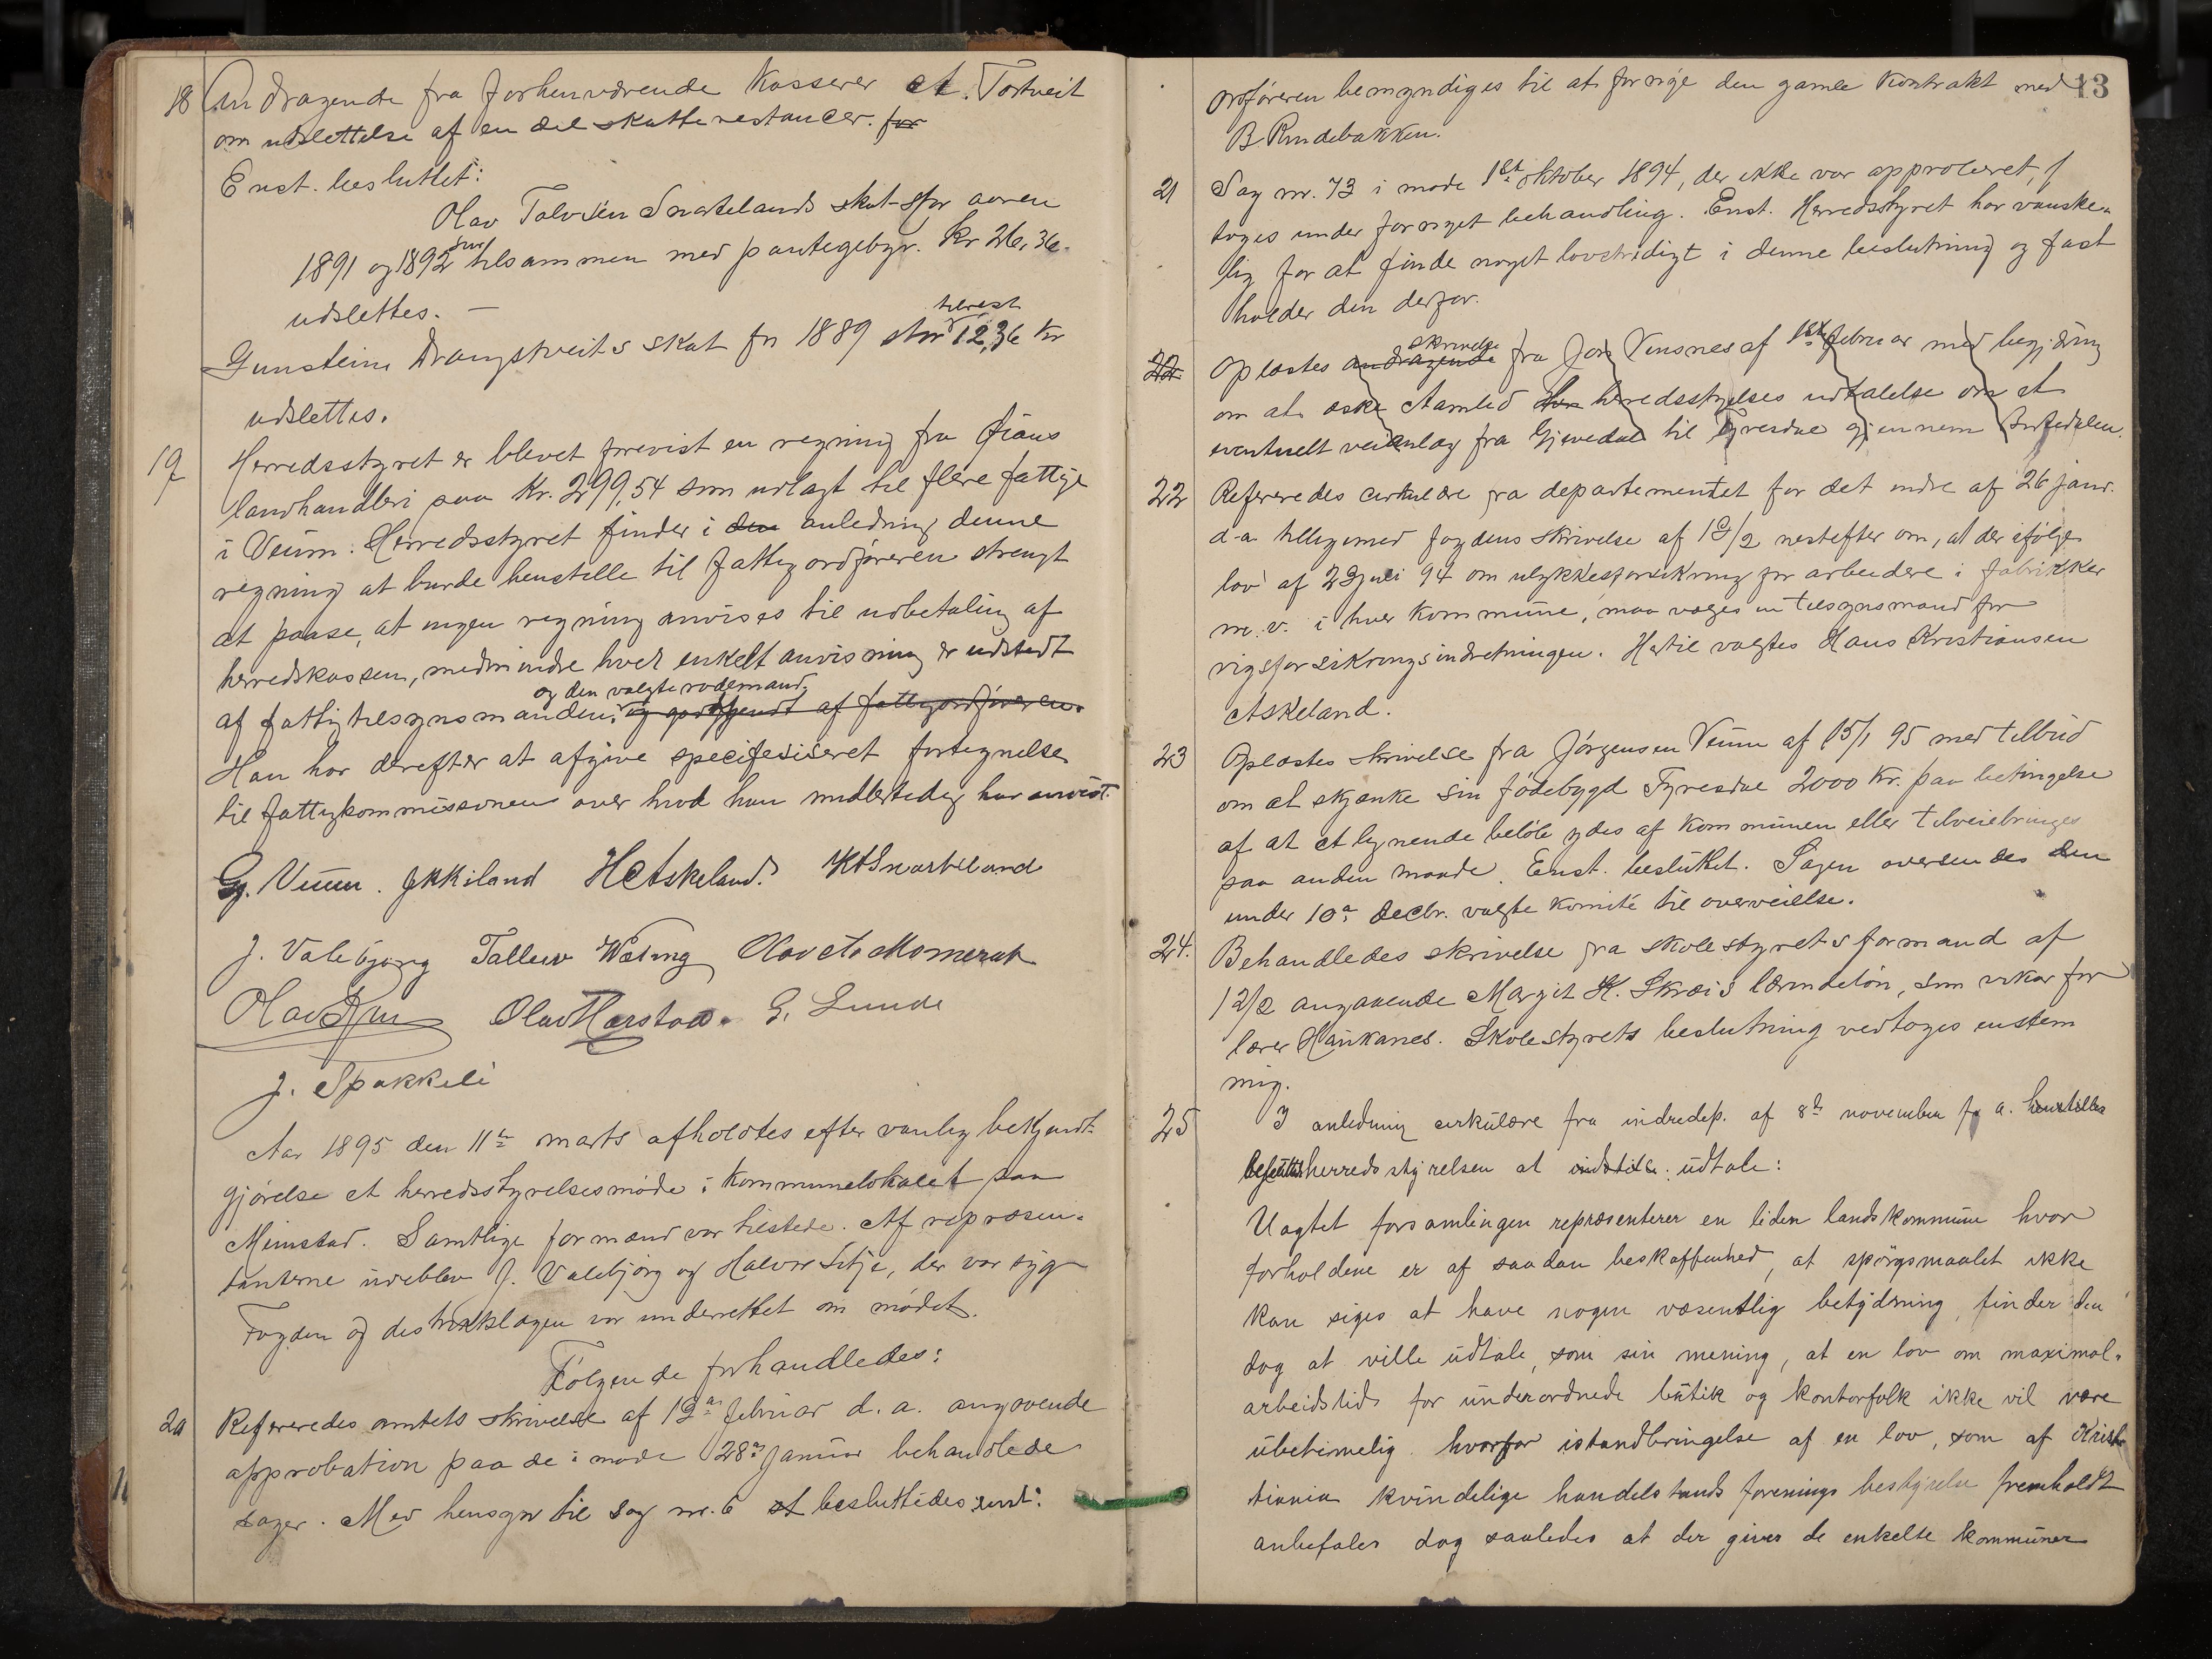 18 Andragende fra forhenværende Kasserer A. Tortveit
om udslettelse af en del skatterestancer. for
Enst. besluttet:
Olav Talvsen Snartelands skat for aaren
1891 og 1892 tilsammen med pantegebyr. Kr 26,36.
udslettes. —
tilrest
Gunsteins Drangstveits skat for 1889 stor 12,36 Kr
udslettes.
19 Herredsstyret er blevet forevist en regning fra
landhandleri paa Kr. 299,54 som udlagt til flere fattige
i Veum. Herredsstyret finder i den anledning denne
regning at burde henstille til fattigordføreren strengt
at paase, at ingen regning anvises til udbetaling af
herredskassen, medmindre hver enkelt anvisning er udstedt
og den valgte rodemand,
af fattigtilsynsmanden, og godkjendt af fattigordføreren.
Han har derefter at afgive specifesiseret fortegnelse
til fattigkommissionen over hvad han midlertidig har anvist.
G. Veum. H Askeland. K A Snarteland
J. Valebjørg Talleiv Olav
Olav Olav Harstad. G. Lunde
J. Spokkeli
Aar 1895 den 11te marts afholdtes efter vanlig bekjendt-
gjørelse et herredsstyrelsesmøde i kommunelokalet paa
Meimstad. Samtlige formænd var tilstede. Af repræsen-
tanterne udeblev J. Valebjørg og Halvor Lilje, der var syg
Fogden og distriktslægen var underrettet om mødet.
Følgende forhandledes:
20 Refereredes amtets skrivelse af 19de februar d. a. angaaende
approbation paa de i møde 28de januar behandlede
sager. Med hensyn til sag nr. 6 besluttedes enst:
13
ordføreren bemyndiges til at fornye den gamle kontrakt med
B. Rindebakken.
21 Sag nr. 73 i møde 1st oktober 1894, der ikke var approberet,
toges under fornyet behandling. Enst. Herredsstyret har vanske-
lig for at finde noget lovstridigt i denne beslutning og fast
holder den derfor.
skrivelse
22. Oplæstes andragende fra Jon Vensnes af 1st februar med begjæring
om at æske Aamlid herredsstyrelses udtalelse om et
eventuelt veianlæg fra Gjevedal til Tyresdal gjennem
22 Refereredes cirkulære fra departementet for det indre af 26 janr.
d-a tilligemed fogdens skrivelse af 19/2 nestefter om, at der ifølge
lov af 23 juli 94 om ulykkesforsikring for arbeidere i fabrikker
m. v. i hver kommune, maa vælges en tilsynsmand for
rigsforsikringsindretningen. Hertil valgtes Hans Kristiansen
Askeland.
23 Oplæstes skrivelse fra Jørgensen Veum af 15/1 95 med tilbud
om at skjænke sin fødebygd Tyresdal 2000 Kr. paa betingelse
af at et lignende beløb ydes af kommunen eller tilveiebringes
paa anden maade. Enst. besluttet. Sagen oversendes den
under 10de decbr. valgte komité til overveielse.
24. Behandledes skrivelse fra skolestyrets formand af
12/2 angaaende Margit H. Skræis lærindeløn, som vikar for
lærer Haukanes. Skolestyrets beslutning vedtoges enstem
mig.
25 I anledning cirkulære fra indredep. af 8de november f. a. henstilles
herredsstyrelsen at udtale:
Uagtet forsamlingen repræsenterer en liden landskommune hvor
forholdene er af saadan beskaffenhed, at spørgsmaalet ikke
kan siges at have nogen væsentlig betydning, finder den
dog at ville udtale, som sin mening, at en lov om maximal-
arbeidstid for underordnede butik og kontorfolk ikke vil være
ubetimelig hvorfor istandbringelse af en lov, som af Kristi-
tiania kvindelige handelstands forenings bestyrelse fremholdt
anbefales dog saaledes at der gives de enkelte kommuner